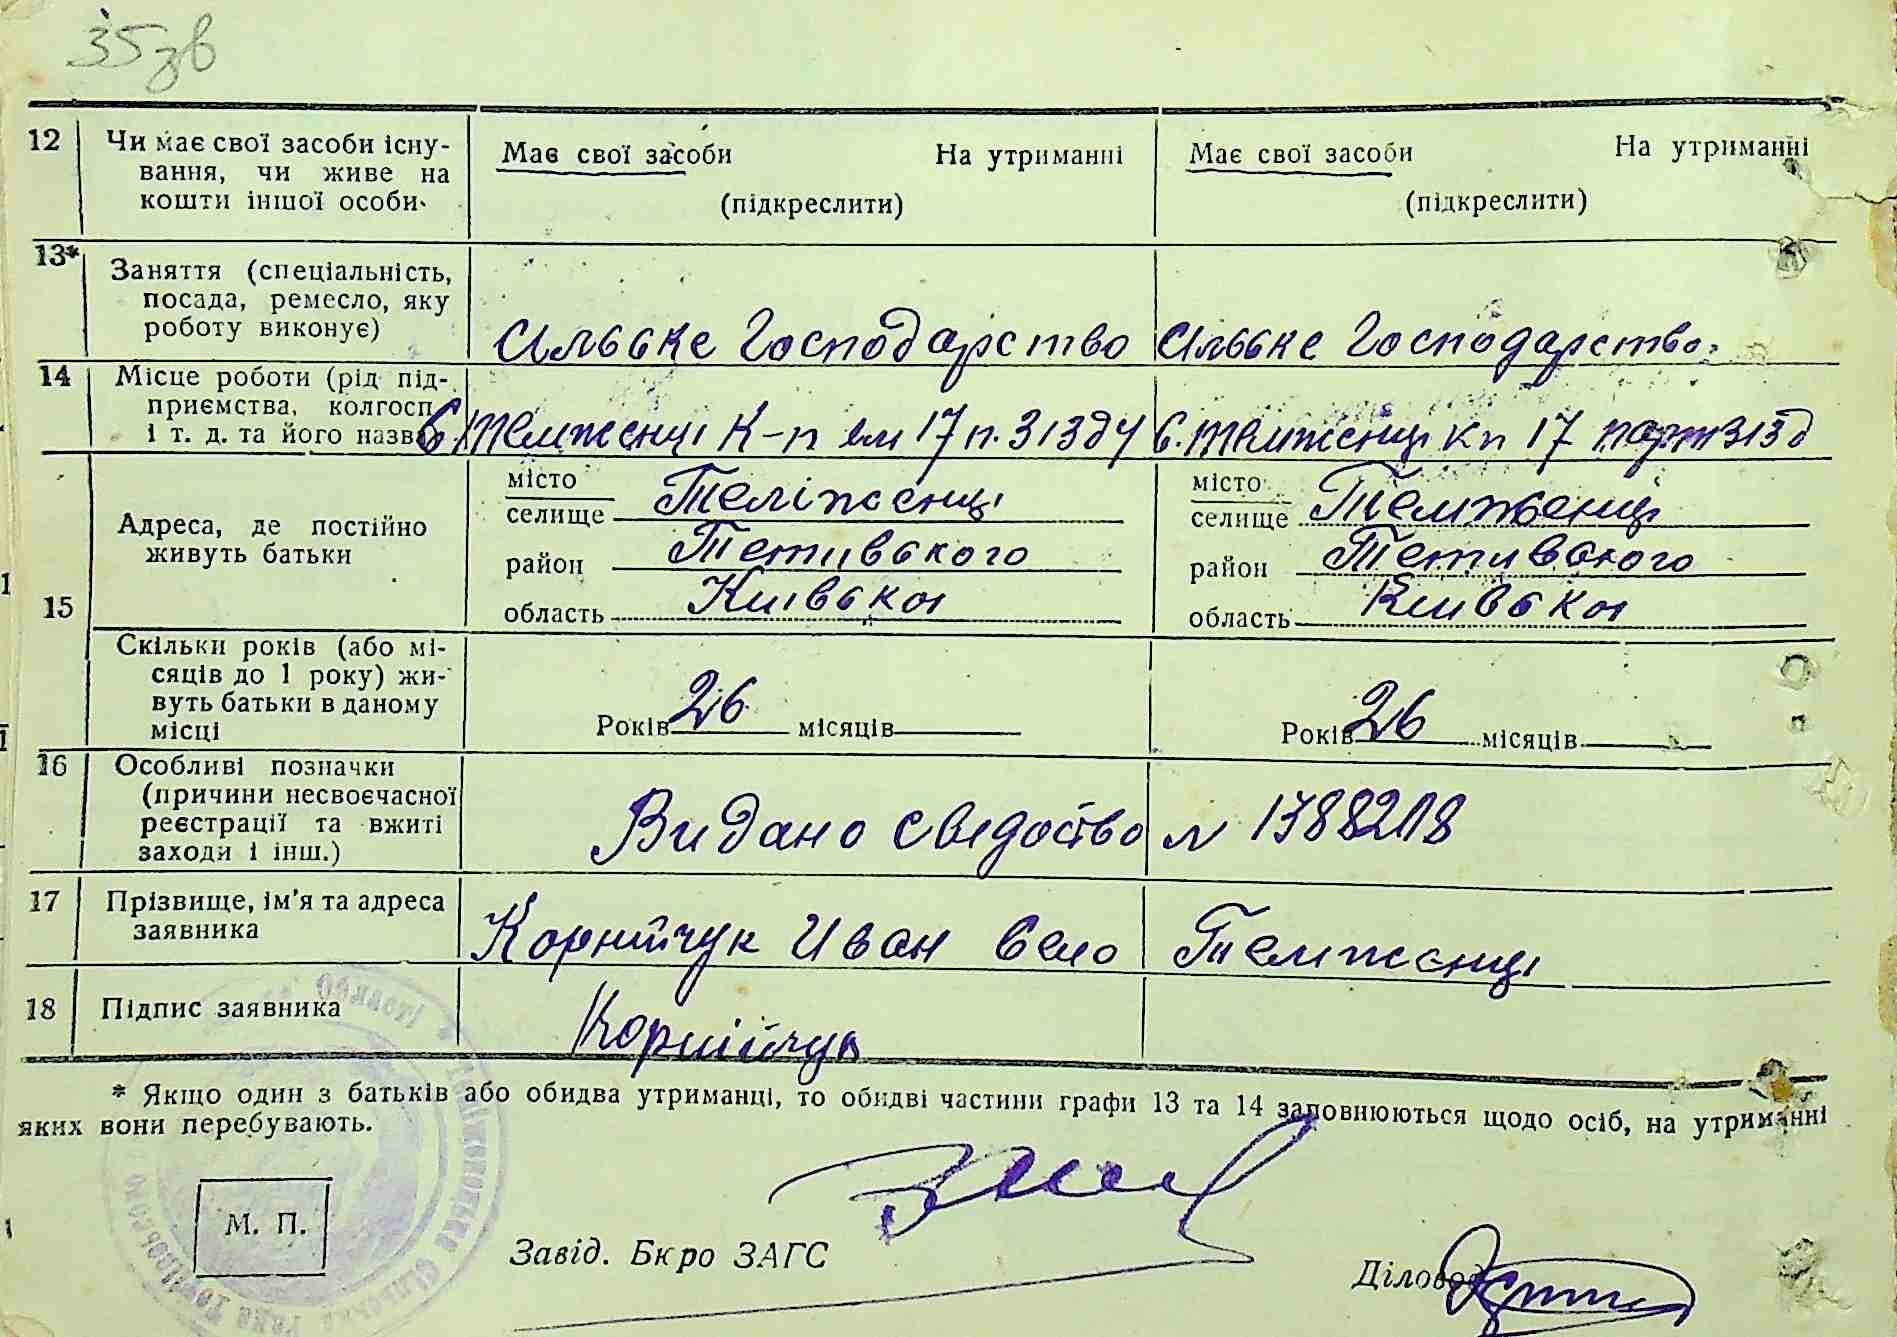 35 зв
12 Чи має свої засоби існу-
вання, чи живе на
кошти іншої особи
Має свої засоби На утриманні
(підкреслити)
Має свої засоби На утриманні
(підкреслити)
13* Заняття (спеціальність,
посада, ремесло, яку
роботу виконує)
Сильське Господарство
Сильське Господарство
14 Місце роботи (рід під-
приємства, колгосп
і т. д. та його назва
с. Теліженці К-п ім 17 п. Зізду
с. Теліженці кп 17 партзізд
15 Адреса, де постійно
живуть батьки
місто
селище Теліженці
район Тетивського
область Київскоі
місто
селище Теліженці
район Тетивського
область Київскоі
Скільки років (або мі-
сяців до 1 року) жи-
вуть батьки в даному
місці
Років 26 місяців
Років 26 місяців
16 Особливі позначки
(причини несвоєчасної
реєстрації та вжиті
заходи і інш.)
Видано сведоство N
17 Прізвище, ім'я та адреса
заявника
Корнійчук Иван село Теліженці
18 Підпис заявника
Корнійчук
* Якщо один з батьків або обидва утриманці, то обидві частини графи 13 та 14 заповнюються щодо осіб, на утриманні
яких вони перебувають.
М. П.
Завід. Бюро ЗАГС
Діловод